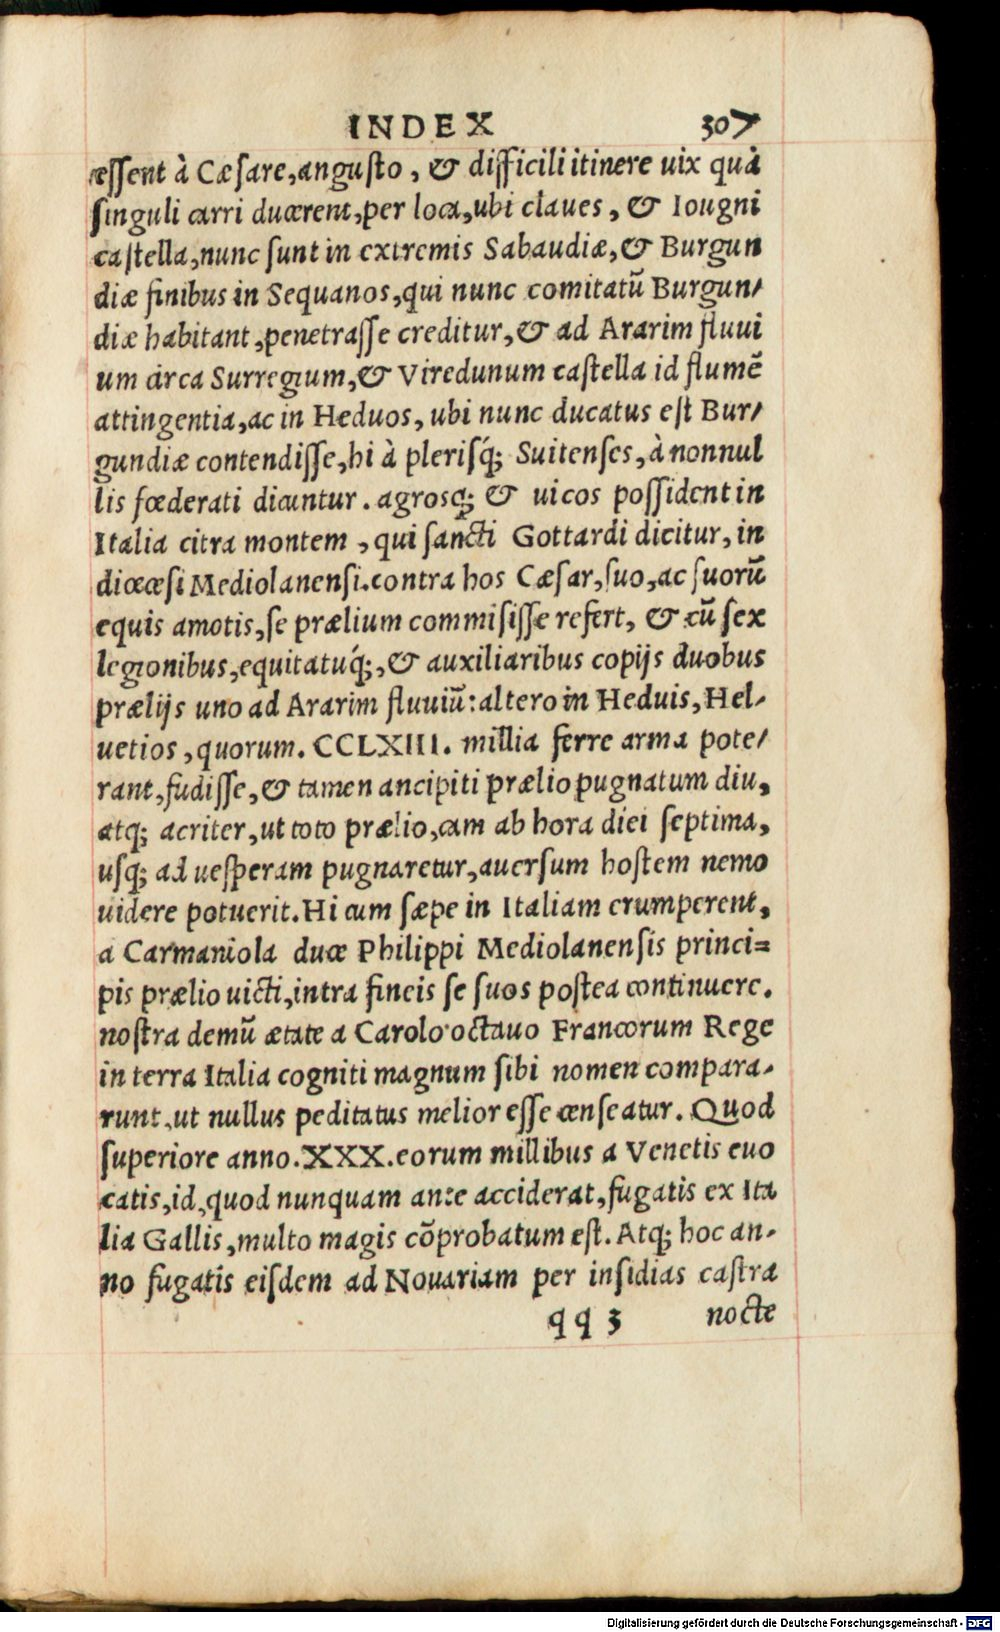 INDEX 307
cessent à Cæsare, angusto, & difficili itinere uix quà
singuli carri ducerent, per loca, ubi claues, & Iougni
castella, nunc sunt in extremis Sabaudiæ, & Burgun
diæ finibus in Sequanos, qui nunc comitatũ Burgun/
diæ habitant, penetrasse creditur, & ad Ararim fluui
um circa Surregium, & Viredunum castella id flumẽ
attingentia, ac in Heduos, ubi nunc ducatus est Bur/
gundiæ contendisse, hi à plerisq́; Suitenses, à nonnul
lis fœderati dicuntur. agrosq; & uicos possident in
Italia citra montem, qui sancti Gottardi dicitur, in
diœcesi Mediolanensi. contra hos Cæsar, suo, ac suorũ
equis amotis, se prælium commisisse refert, & cũ sex
legionibus, equitatuq́;, & auxiliaribus copijs duobus
prælijs uno ad Ararim fluuiũ: altero in Heduis, Hel-
uetios, quorum. CCLXIII. millia ferre arma pote/
rant, fudisse, & tamen ancipiti prælio pugnatum diu,
atq; acriter, ut toto prælio, cum ab hora diei septima,
usq; ad uesperam pugnaretur, auersum hostem nemo
uidere potuerit. Hi cum sæpe in Italiam erumperent,
a Carmaniola duce Philippi Mediolanensis princi=
pis prælio uicti, intra fineis se suos postea continuere.
nostra demũ ætate a Carolo octauo Francorum Rege
in terra Italia cogniti magnum sibi nomen compara-
runt, ut nullus peditatus melior esse censeatur. Quod
superiore anno. XXX. eorum millibus a Venetis euo
catis, id, quod nunquam ante acciderat, fugatis ex Ita
lia Gallis, multo magis cõprobatum est. Atq; hoc an-
no fugatis eisdem ad Nouariam per insidias castra
qq 3 nocte
Digitalisierung gefördert durch die Deutsche Forschungsgemeinschaft - DFG